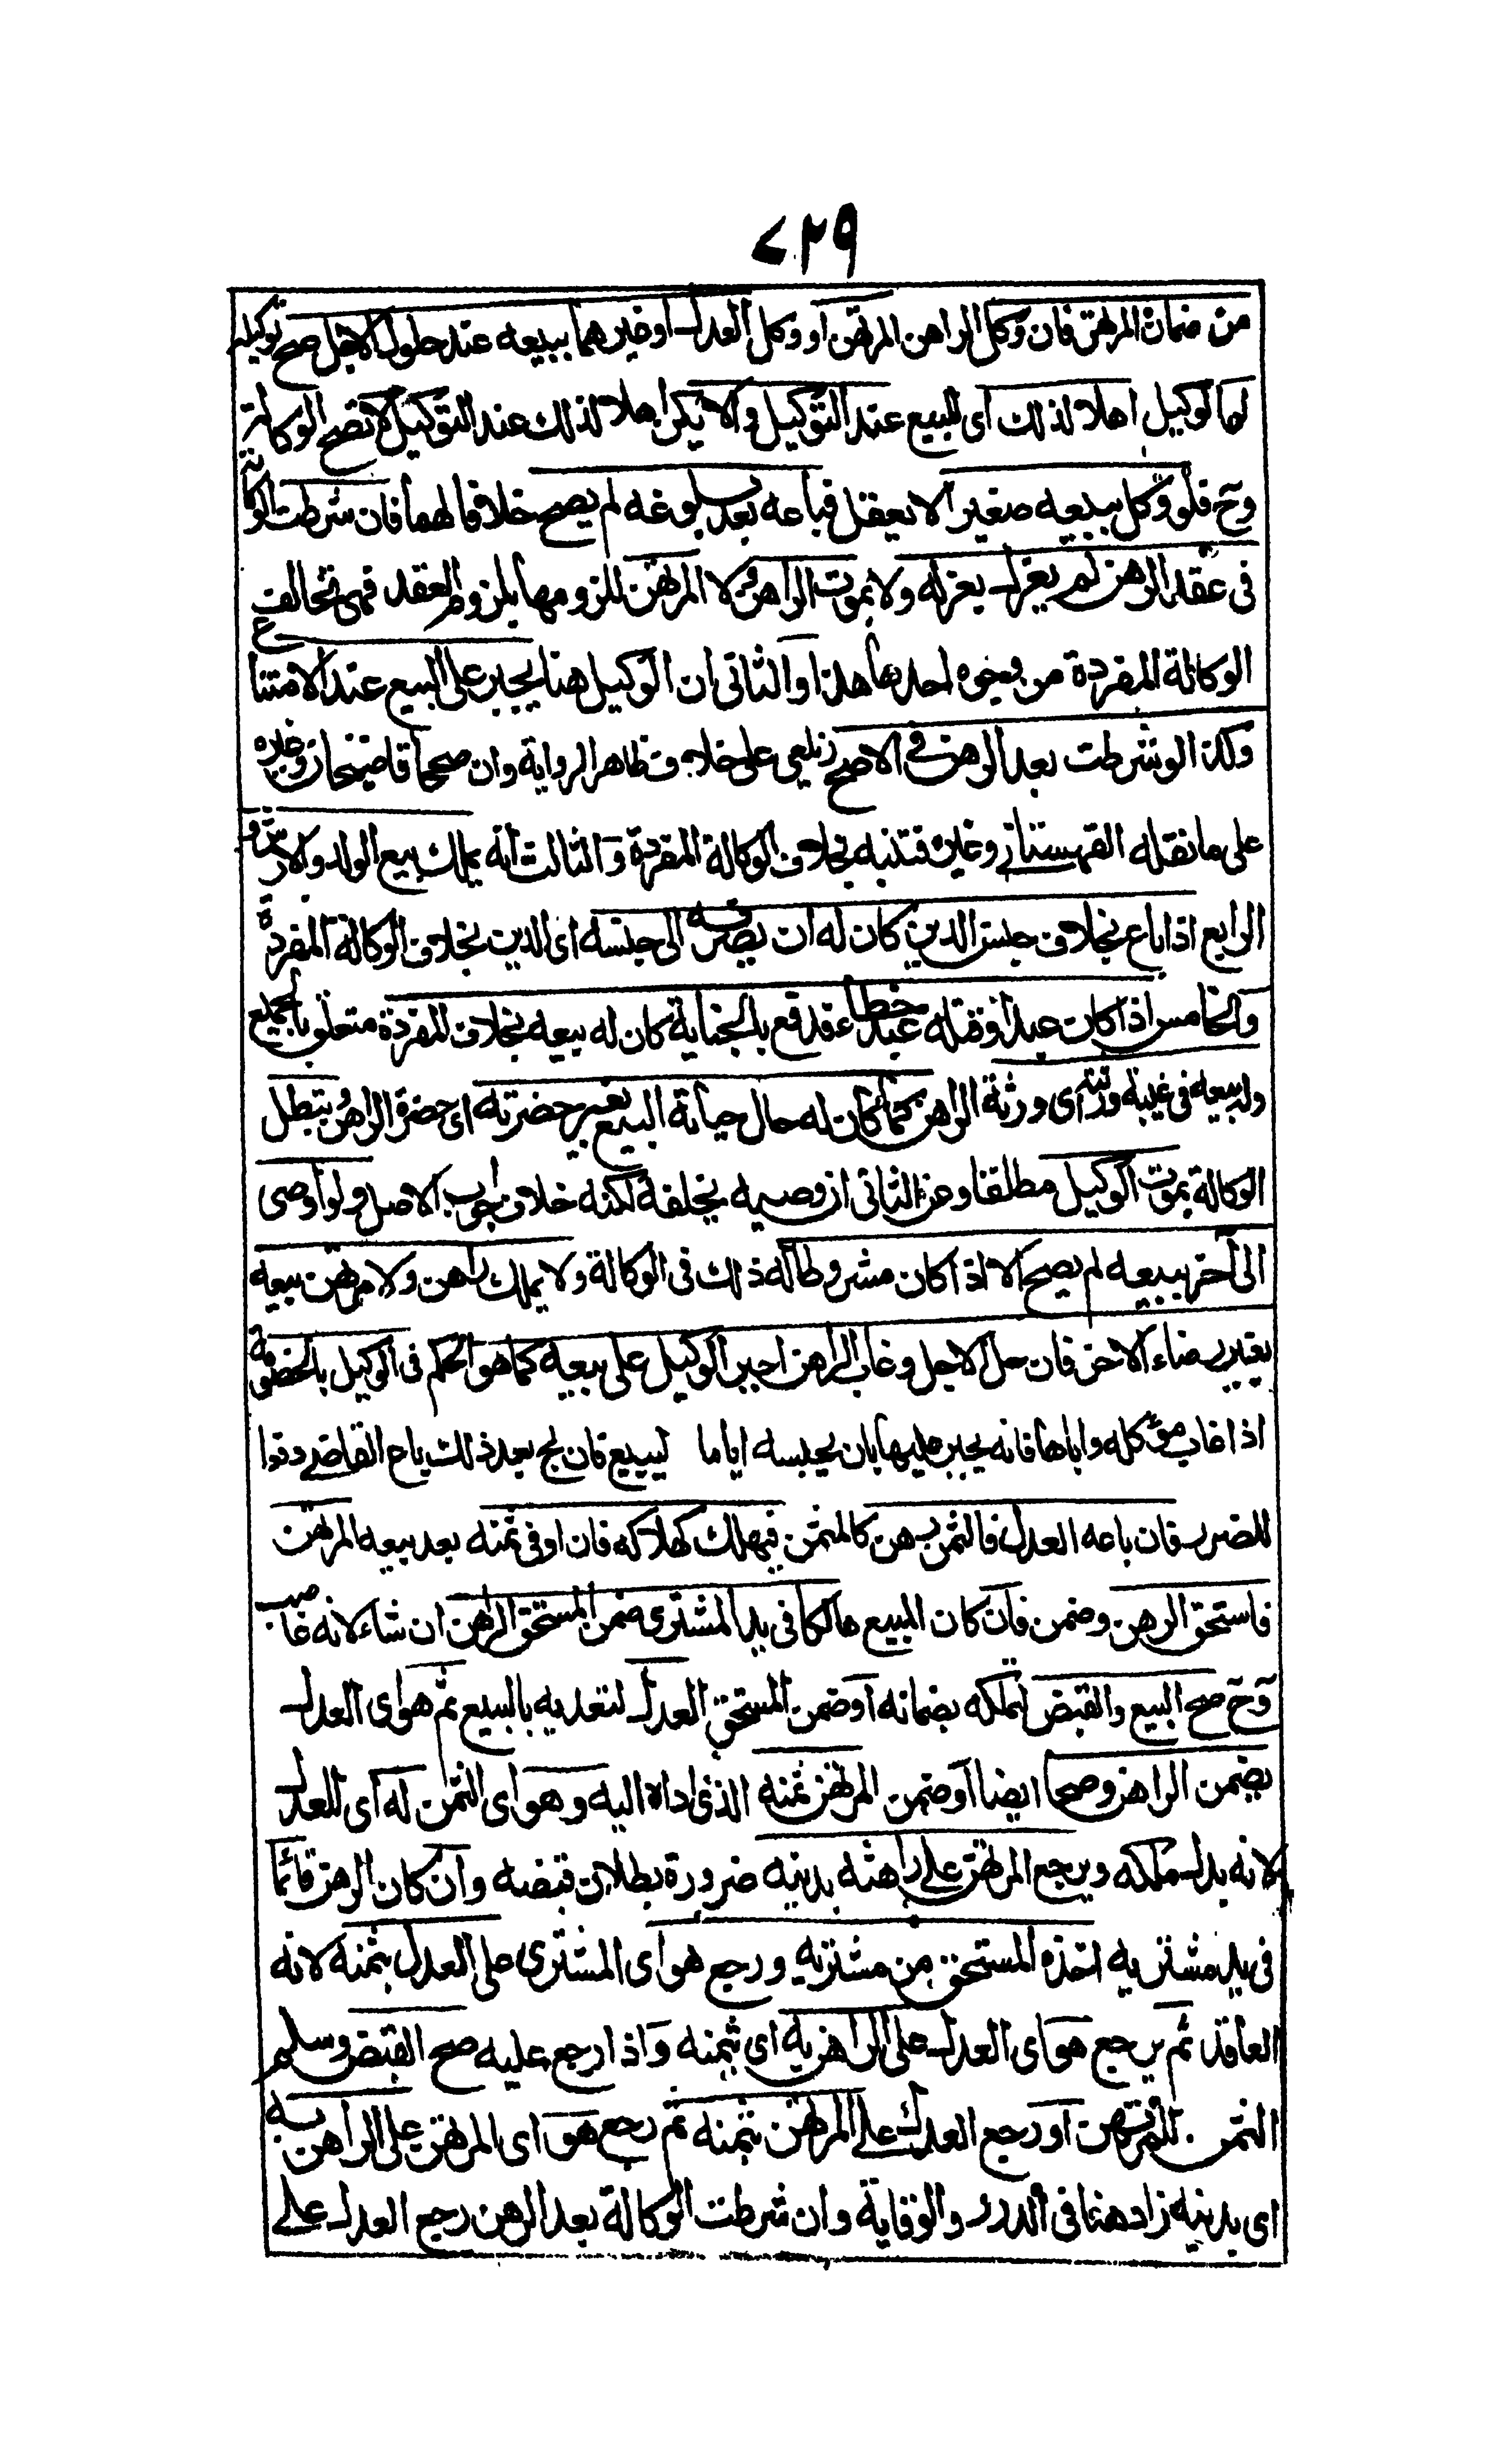 ٧٢٩
من ضمان المرتهن فان وكل الراهن المرتهن او وكل العدل او غيرهما ببيعه عند حلول الاجل صح توكيله
لو الوكيل اهلا لذلك اى للبيع عند التوكيل والا يكن اهلا لذلك عند التوكيل لا تصح الوكالة
وح فلو وكل ببيعه صغيرا لا يعقل فباعه بعد بلوغه لم يصح خلافا لهما فان شرطت الوكالة
فى عقد الرهن لم يعزل بعزله ولا بموت الراهن ولا المرتهن للزومها بلزوم العقد فهى تخالف
الوكالة المفردة من وجوه احدها هذا والثانى ان الوكيل هنا يجبر على البيع عند الامتناع
وكذا لو شرطت بعد الرهن فى الاصح زيلعى على خلاف ظاهر الرواية وان صححها قاضيخان وغيره
على ما نقله القهستانى وغيره فتنبه بخلاف الوكالة المفردة والثالث انه يملك بيع الولد والارش و
الرابع اذا باع بخلاف جنس الدين كان له ان يصرفه الى جنسه اى الدين بخلاف الوكالة المفردة
والخامس اذا كان عبدا وقتله عبد خطاء فدفع بالجناية كان له بيعه بخلاف المفردة متعلق بالجميع
وله بيعه فى غيبة ورثته اى ورثة الراهن كما كان له حال حياته البيع بغير حضرته اى حضرة الراهن وتبطل
الوكالة بموت الوكيل مطلقا وعن الثانى ان وصيه يخلفه لكنه خلاف جواب الاصل ولو اوصى
الى آخر ببيعه لم يصح الا اذا كان مشروطا له ذلك فى الوكالة ولا يملك راهن ولا مرتهن بيعه
بغير رضاء الآخر فان حل الاجل وغاب الراهن اجبر الوكيل على بيعه كما هو الحكم فى الوكيل بالخصومة
اذا غاب موكله واباها فانه يجبر عليها بان يحبسه اياما ليبيع فان لج بعد ذلك باع القاضى دفعا
للضرر فان باعه العدل فالثمن رهن كالمثمن فيهلك كهلاكه فان اوفى ثمنه بعد بيعه المرتهن
فاستحق الرهن وضمن فان كان المبيع هالكا فى يد المشترى ضمن المستحق الراهن ان شاء لانه غاصب
وح صح البيع والقبض لتملكه بضمانه او ضمن المستحق العدل لتعديه بالبيع ثم هو اى العدل
يضمن الراهن وصحا ايضا او ضمن المرتهن ثمنه الذى اداه اليه وهو اى الثمن له اى للعدل
لانه بدل ملكه ويرجع المرتهن على راهنه بدينه ضرورة بطلان قبضه وان كان الرهن قائما
فى يد مشتريه اخذه المستحق من مشتريه ورجع هو اى المشترى على العدل بثمنه لانه
العاقد ثم يرجع هو اى العدل على الراهن به اى بثمنه واذا رجع عليه صح القبض وسلم
الثمن للمرتهن او رجع العدل على المرتهن بثمنه ثم رجع هو اى المرتهن على الراهن به
اى بدينه زاد هنا فى الدرر والوقاية وان شرطت الوكالة بعد الرهن رجع العدل على